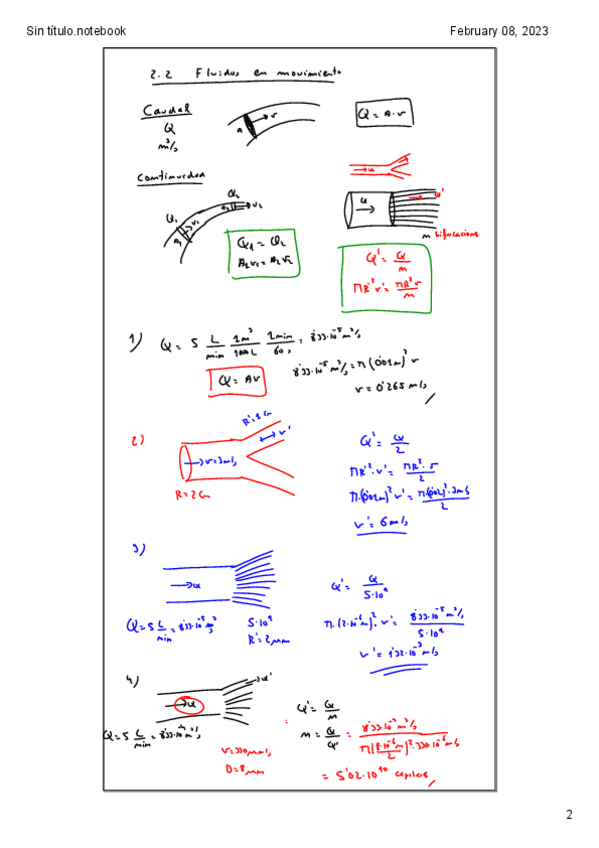 Sin título.notebook
February 08, 2023
2.2 Fluidos en movimiento
Caudal
Q
m³/s
A
v
Q = A·v
Continuidad
Q₁
v₁
A₁
Q₂
A₂
v₂
Q₁ = Q₂
A₂v₁ = A₂v₂
Q
Q
Q'
m bifurcacions
Q' = Q/m
πR'²v' = πR²v/m
1) Q = 5 L/min 1m³/1000L 1min/60s = 8'33·10⁻⁵ m³/s
Q = AV
8'33·10⁻⁵ m³/s = π(0'01m)² v
v = 0'265 m/s
2)
R'=1cm
v'
v=3m/s
R=2cm
Q' = Q/2
πR'²·v' = πR²·v/2
π·(0'01m)² v' = π(0'02)²·3m/s/2
v' = 6 m/s
3)
Q
Q=5 L/min = 8'33·10⁻⁵ m³/s
5·10⁹
R'=2μm
Q' = Q/5·10⁹
π·(2·10⁻⁶m)²·v' = 8'33·10⁻⁵ m³/s/5·10⁹
v' = 1'32·10⁻³ m/s
4)
Q
Q'
Q=5 L/min = 8'33·10⁻⁵ m³/s
v=330μm/s
D=8μm
Q' = Q/m
m = Q/Q' = 8'33·10⁻⁵ m³/s/π(8·10⁻⁶m/2)²·330·10⁻⁶ m/s
= 5'02·10¹⁰ capilars
2